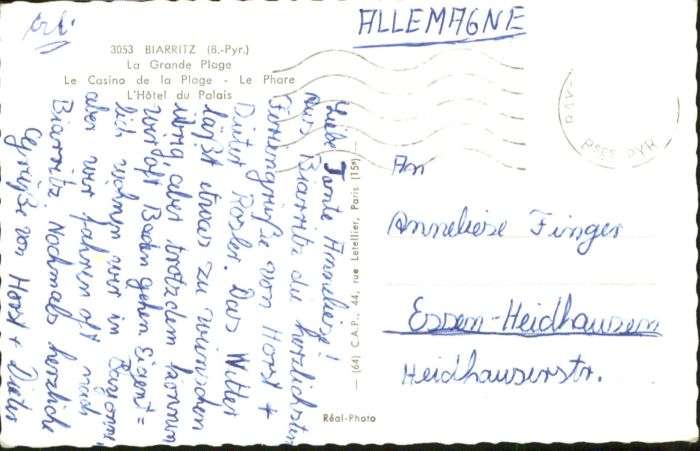 ALLEMAGNE
3053 BIARRITZ (B.-Pyr.)
La Grande Plage
Le Casino de la Plage - Le Phare
L'Hôtel du Palais
Liebe Tante Anneliese!
Aus Biarritz die herzlichsten
Feriengrüße von Horst +
Dieter Rösler. Das Wetter
läßt etwas zu wünschen
übrig aber trotzdem können
wir oft Baden gehen. Eigent=
lich wohnen wir in
aber wir fahren oft nach
Biarritz. Nochmals herzliche
Grüße von Horst + Dieter
— (64) C.A.P., 44, rue Letellier, Paris (15e) —
Réal-Photo
An
Anneliese Finger
Essen-Heidhausen
Heidhauserstr.